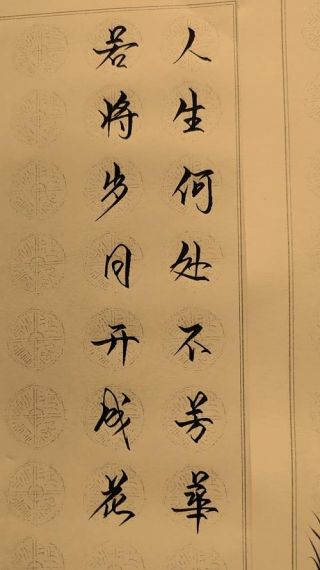 人生何处不芳華
若将岁月开成花